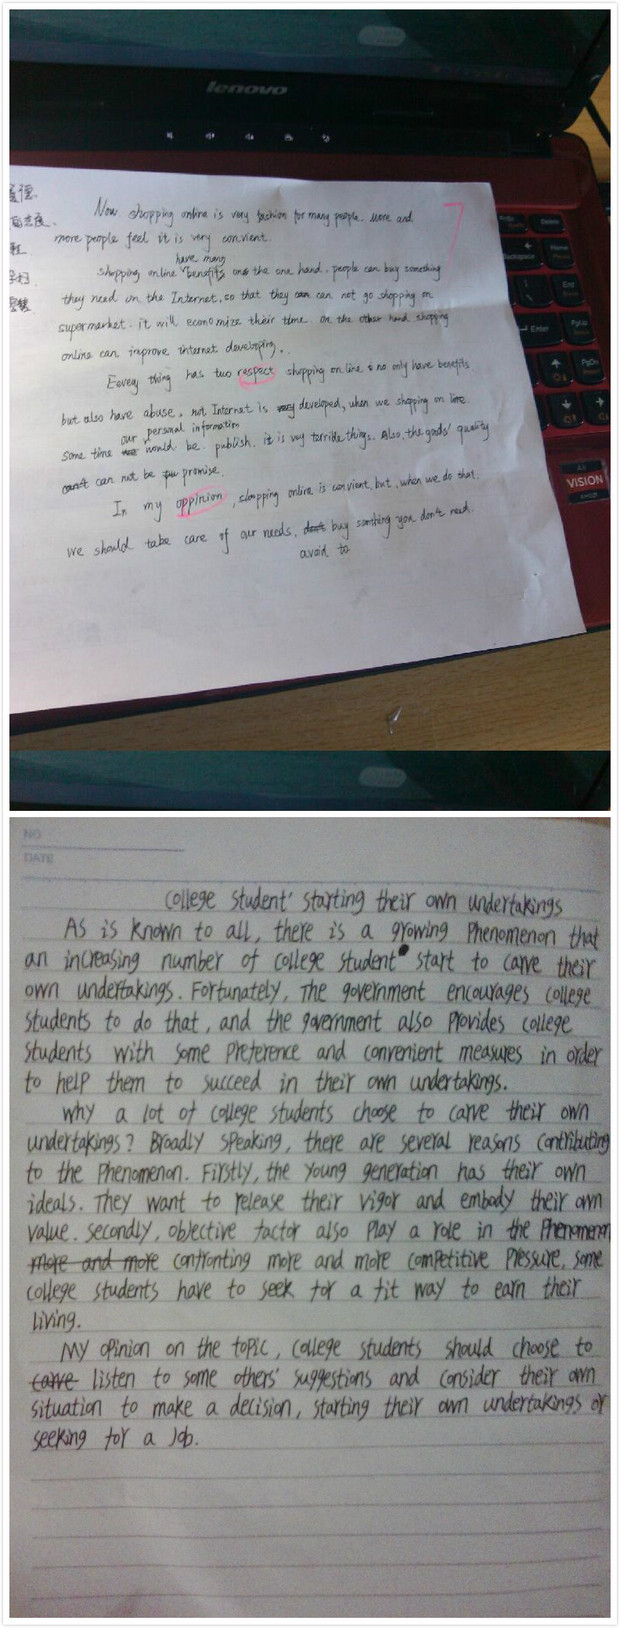 lenovo
Now shopping online is very fashion for many people. More and
more people feel it is very convient.
have many
shopping online benefits one the one hand. people can buy something
they need on the Internet, so that they can can not go shopping on
supermarket. it will economize their time. on the other hand shopping
online can improve internet developing.
Eevery thing has two respect shopping on line is no only have benefits
but also have abuse, not Internet is very developed, when we shopping on line
our personal information
Some time would be publish. it is vey terrible things. Also, the gods' quality
can't can not be promise.
In my oppinion, shopping online is convient, but, when we do that.
we should take care of our needs. don't buy somthing you don't need.
avoid to
7
Delete
Backspace
Home
End
Enter
PgUp
PgDn
VISION
AMD
NO
DATE
College student' starting their own undertakings
As is known to all, there is a growing Phenomenon that
an increasing number of college student start to carve their
own undertakings. Fortunately, The government encourages college
students to do that, and the government also Provides college
students with some Preference and convenient measures in order
to help them to succeed in their own undertakings.
Why a lot of college students choose to carve their own
undertakings? Broadly speaking, there are several reasons contributing
to the Phenomenon. Firstly, the young generation has their own
ideals. They want to release their vigor and embody their own
value. Secondly, objective factor also Play a role in the Phenomenon
more and more confronting more and more competitive Pressure, some
college students have to seek for a fit way to earn their
living.
My opinion on the topic, college students should choose to
carve listen to some others' suggestions and consider their own
situation to make a decision, starting their own undertakings or
seeking for a Job.